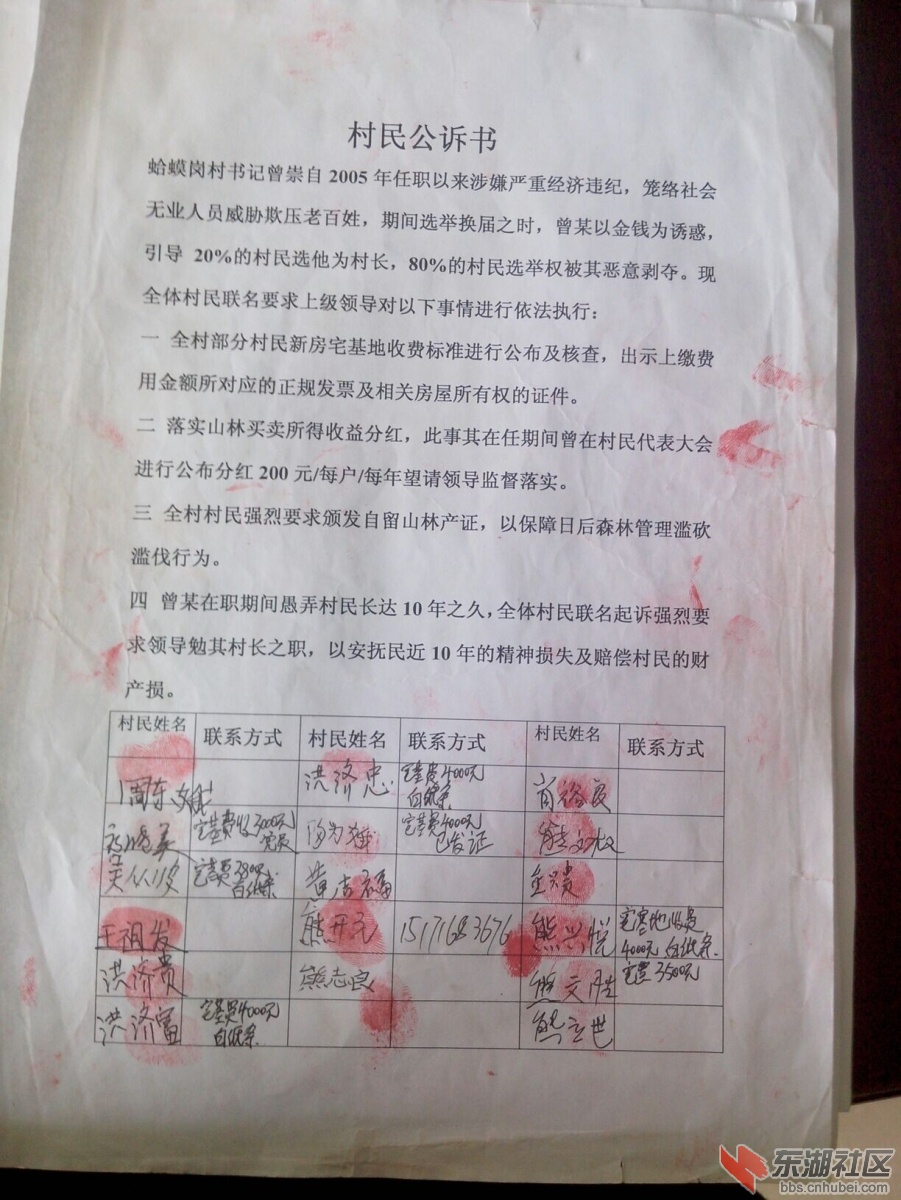 村民公诉书
蛤蟆岗村书记曾崇自 2005 年任职以来涉嫌严重经济违纪，笼络社会
无业人员威胁欺压老百姓，期间选举换届之时，曾某以金钱为诱惑，
引导 20%的村民选他为村长，80%的村民选举权被其恶意剥夺。现
全体村民联名要求上级领导对以下事情进行依法执行：
一 全村部分村民新房宅基地收费标准进行公布及核查，出示上缴费
用金额所对应的正规发票及相关房屋所有权的证件。
二 落实山林买卖所得收益分红，此事其在任期间曾在村民代表大会
进行公布分红 200 元/每户/每年望请领导监督落实。
三 全村村民强烈要求颁发自留山林产证，以保障日后森林管理滥砍
滥伐行为。
四 曾某在职期间愚弄村民长达 10 年之久，全体村民联名起诉强烈要
求领导勉其村长之职，以安抚民近 10 年的精神损失及赔偿村民的财
产损。
村民姓名 联系方式 村民姓名 联系方式 村民姓名 联系方式
洪济忠 宅基费4000元 白纸条
宅基费 3000元 党员 宅基费4000元 已发证
宅基费 白纸条
王祖发 熊开元 熊兴悦 宅基地收费 4000元 白纸条
洪济贵 熊志良 熊文胜 宅基 3500元
洪济富 宅基费4000元 白纸条 熊立世
东湖社区
bbs.cnhubei.com